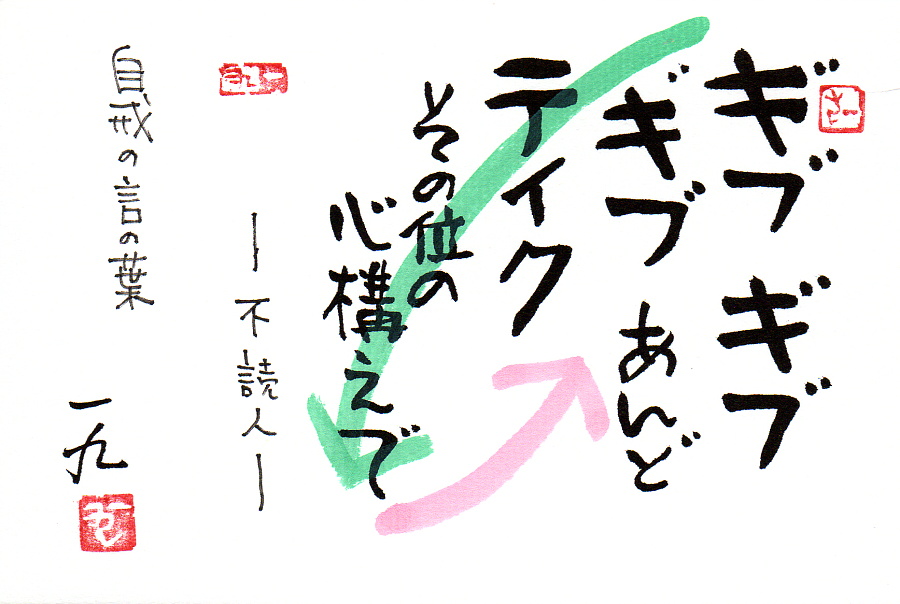 ギブ ギブ
ギブ あんど
テイク
その位の
心構えで
― 不読人 ―
自戒の言の葉
一九